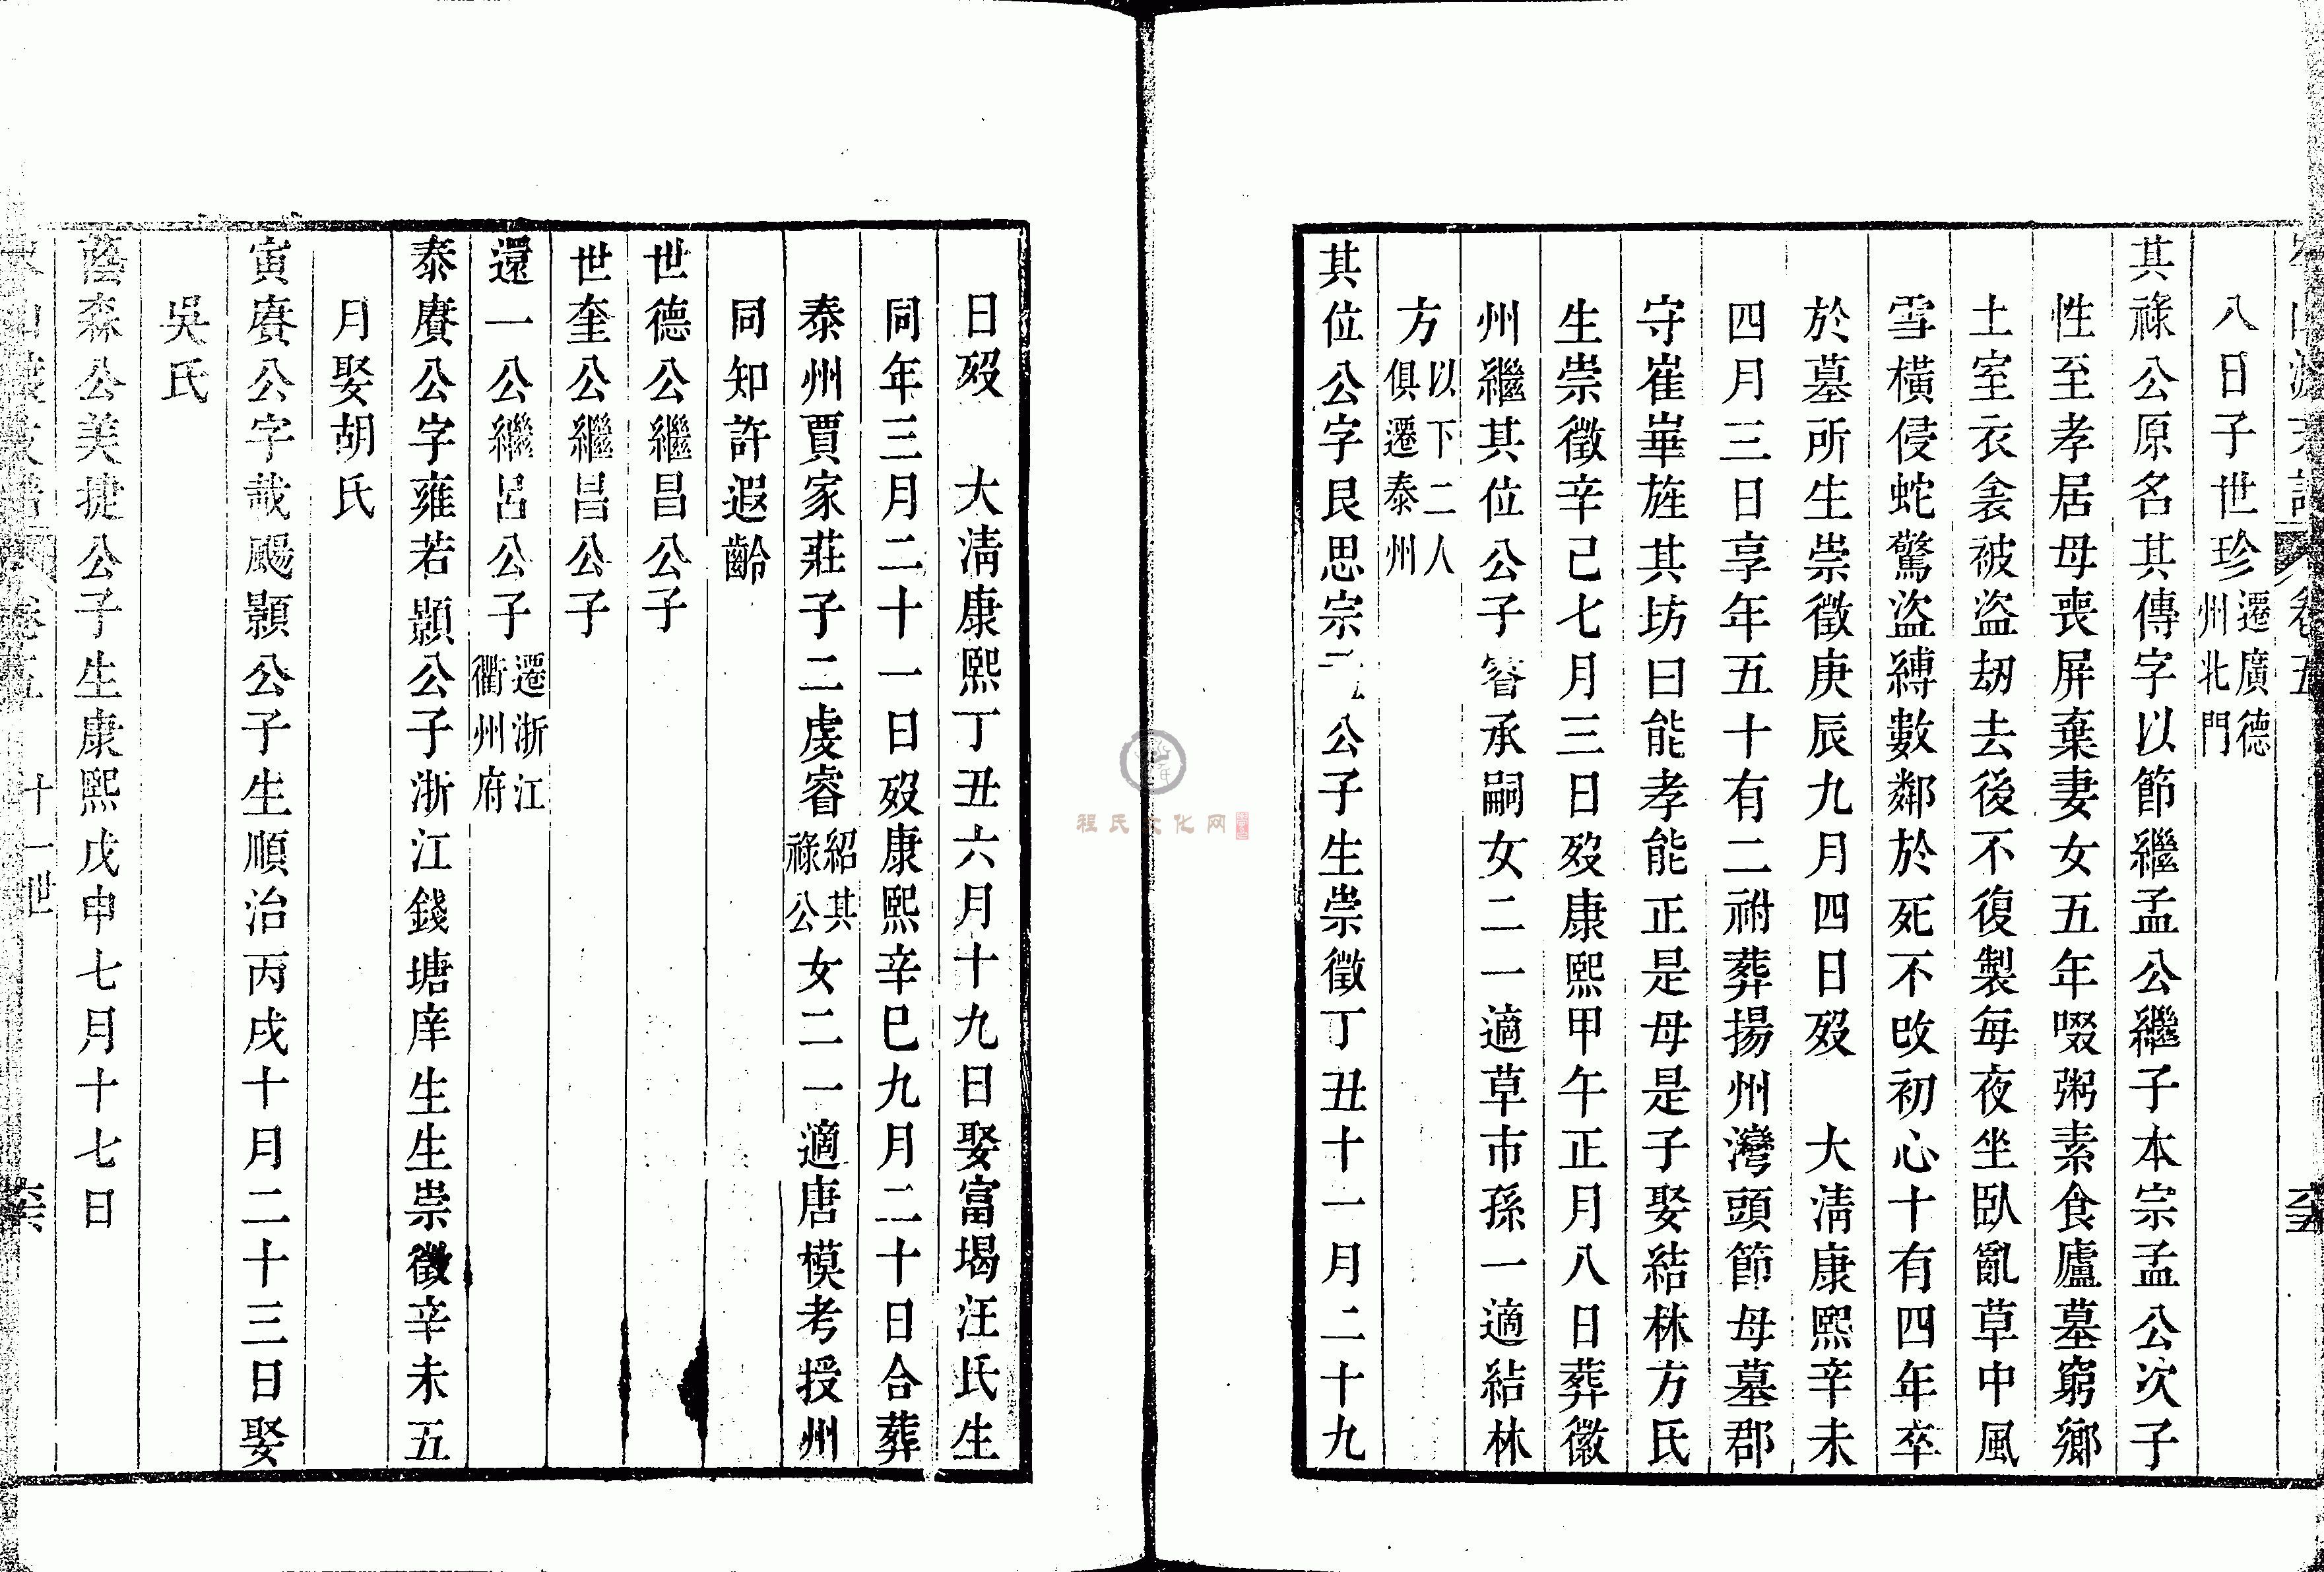 八日子世珍遷廣德州北門
其祿公原名其傳字以節繼孟公繼子本宗孟公次子
性至孝居母喪屏棄妻女五年啜粥素食廬墓窮鄉
土室衣衾被盜刼去後不復製每夜坐臥亂草中風
雪橫侵蛇驚盜縛數鄰於死不改初心十有四年卒
於墓所生崇徵庚辰九月四日歿　大淸康熙辛未
四月三日享年五十有二祔葬揚州灣頭節母墓郡
守崔崋旌其坊曰能孝能正是母是子娶結林方氏
生崇徵辛己七月三日歿康熙甲午正月八日葬徽
州繼其位公子睿承嗣女二一適草市孫一適結林
方以下二人俱遷泰州
其位公字艮思宗公子生崇徵丁丑十一月二十九
日歿　大淸康熙丁丑六月十九日娶富堨汪氏生
同年三月二十一日歿康熙辛巳九月二十日合葬
泰州賈家莊子二虔睿紹其祿公女二一適唐模考授州
同知許遐齡
世德公繼昌公子
世奎公繼昌公子
還一公繼呂公子遷浙江衢州府
泰賡公字雍若顥公子浙江錢塘庠生生崇徵辛未五
月娶胡氏
寅賡公字載颺顥公子生順治丙戌十月二十三日娶
吳氏
蔭森公美捷公子生康熙戊申七月十七日
卷五　十一世
程氏文化网